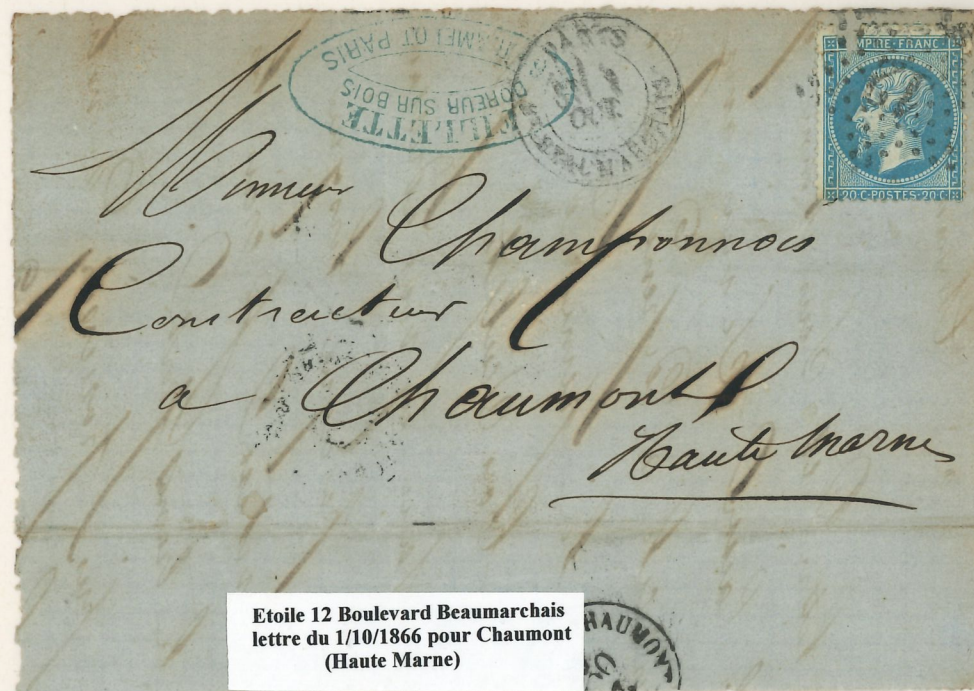 FILLETTE
DOREUR SUR BOIS
AMELOT PARIS
PARIS
OCT.
EMPIRE FRANC
20 C POSTES 20 C
Monsieur
Champonnois
Constructeur
a Chaumont
Haute Marne
Etoile 12 Boulevard Beaumarchais
lettre du 1/10/1866 pour Chaumont
(Haute Marne)
CHAUMONT